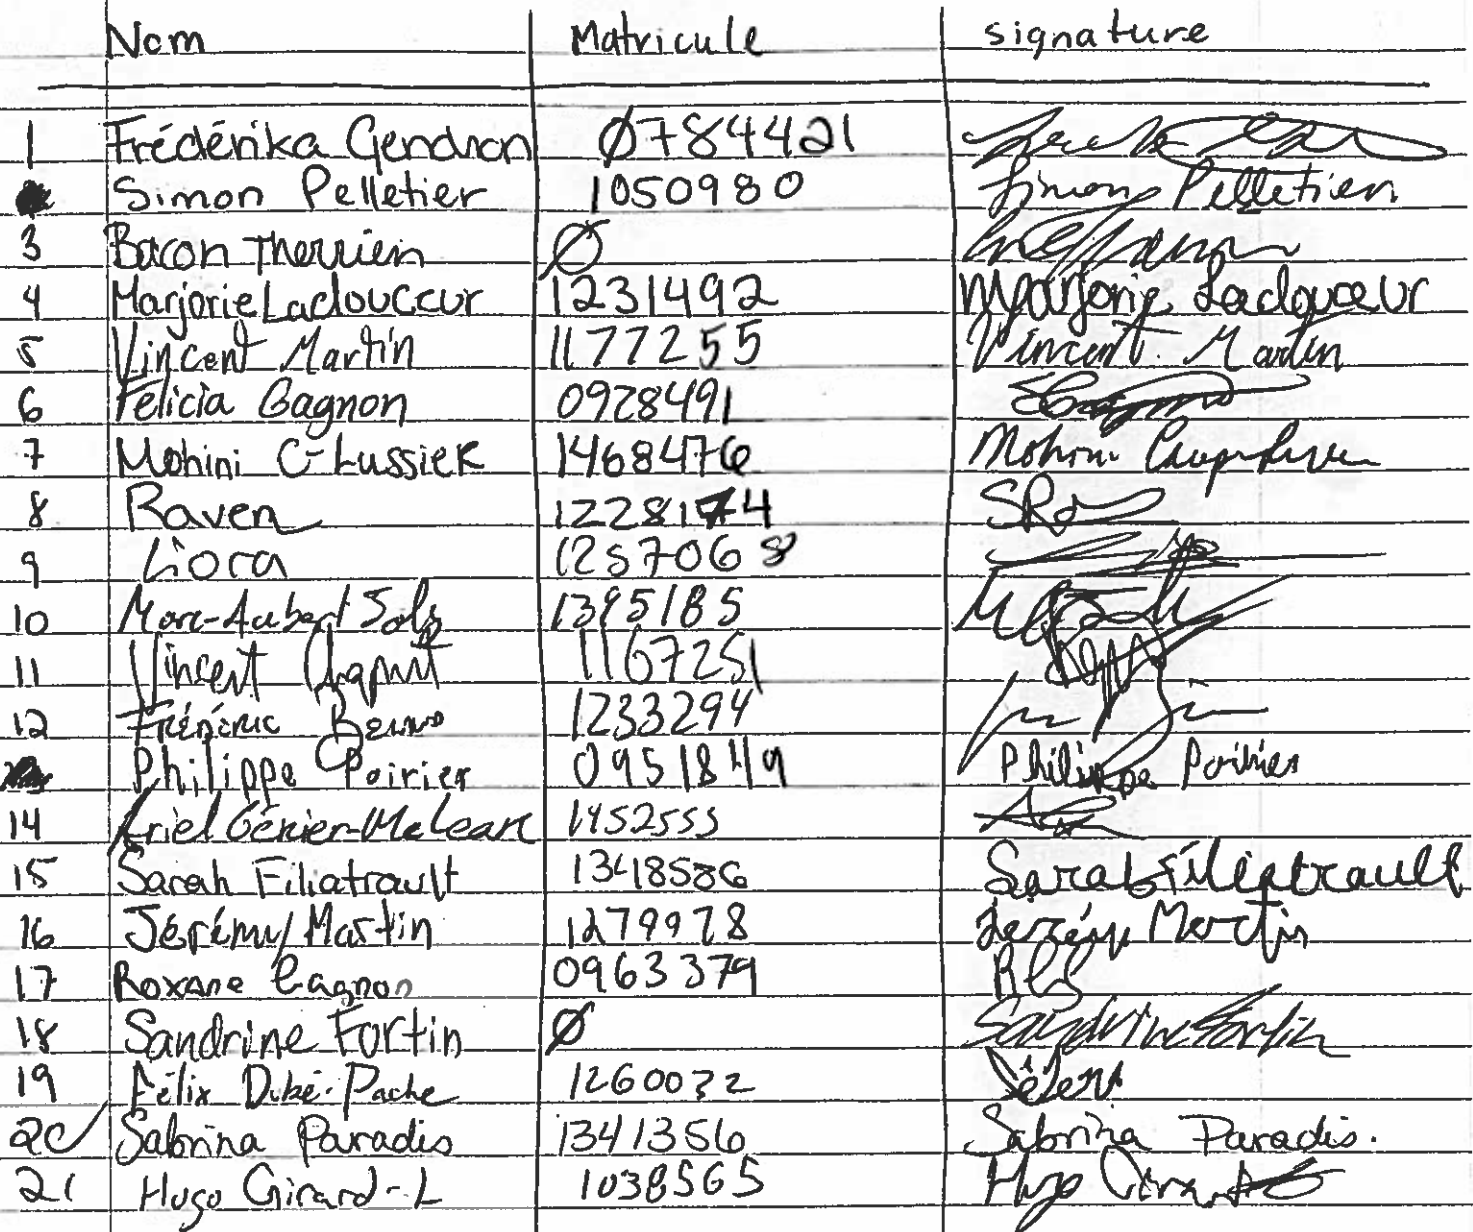 Nom Matricule signature
1 Frédérika Gendron Ø784421
Simon Pelletier 1050980 Simon Pelletier
3 Bacon Therrien Ø
4 Marjorie Ladouceur 1231492 Marjorie Ladouceur
5 Vincent Martin 1177255 Vincent Martin
6 Félicia Gagnon 0928491
7 Mohini C-Lussier 1468476 Mohini
8 Raven 1228174
9 Liora 1257068
10 Marc-Aubert 1395185
11 Vincent Chaput 1167251
12 1233294
Philippe Poirier 0951849 Philippe Poirier
14 Ariel Génier-McLean 1452555
15 Sarah Filiatrault 1348586 Sarah Filiatrault
16 Jérémy Martin 1279978 Jérémy Martin
17 Roxane Gagnon 0963379 RG
18 Sandrine Fortin Ø Sandrine Fortin
19 Félix Dubé-Pache 1260032
20 Sabrina Paradis 1341356 Sabrina Paradis.
21 Hugo Girard-L 1038565 Hugo Girard